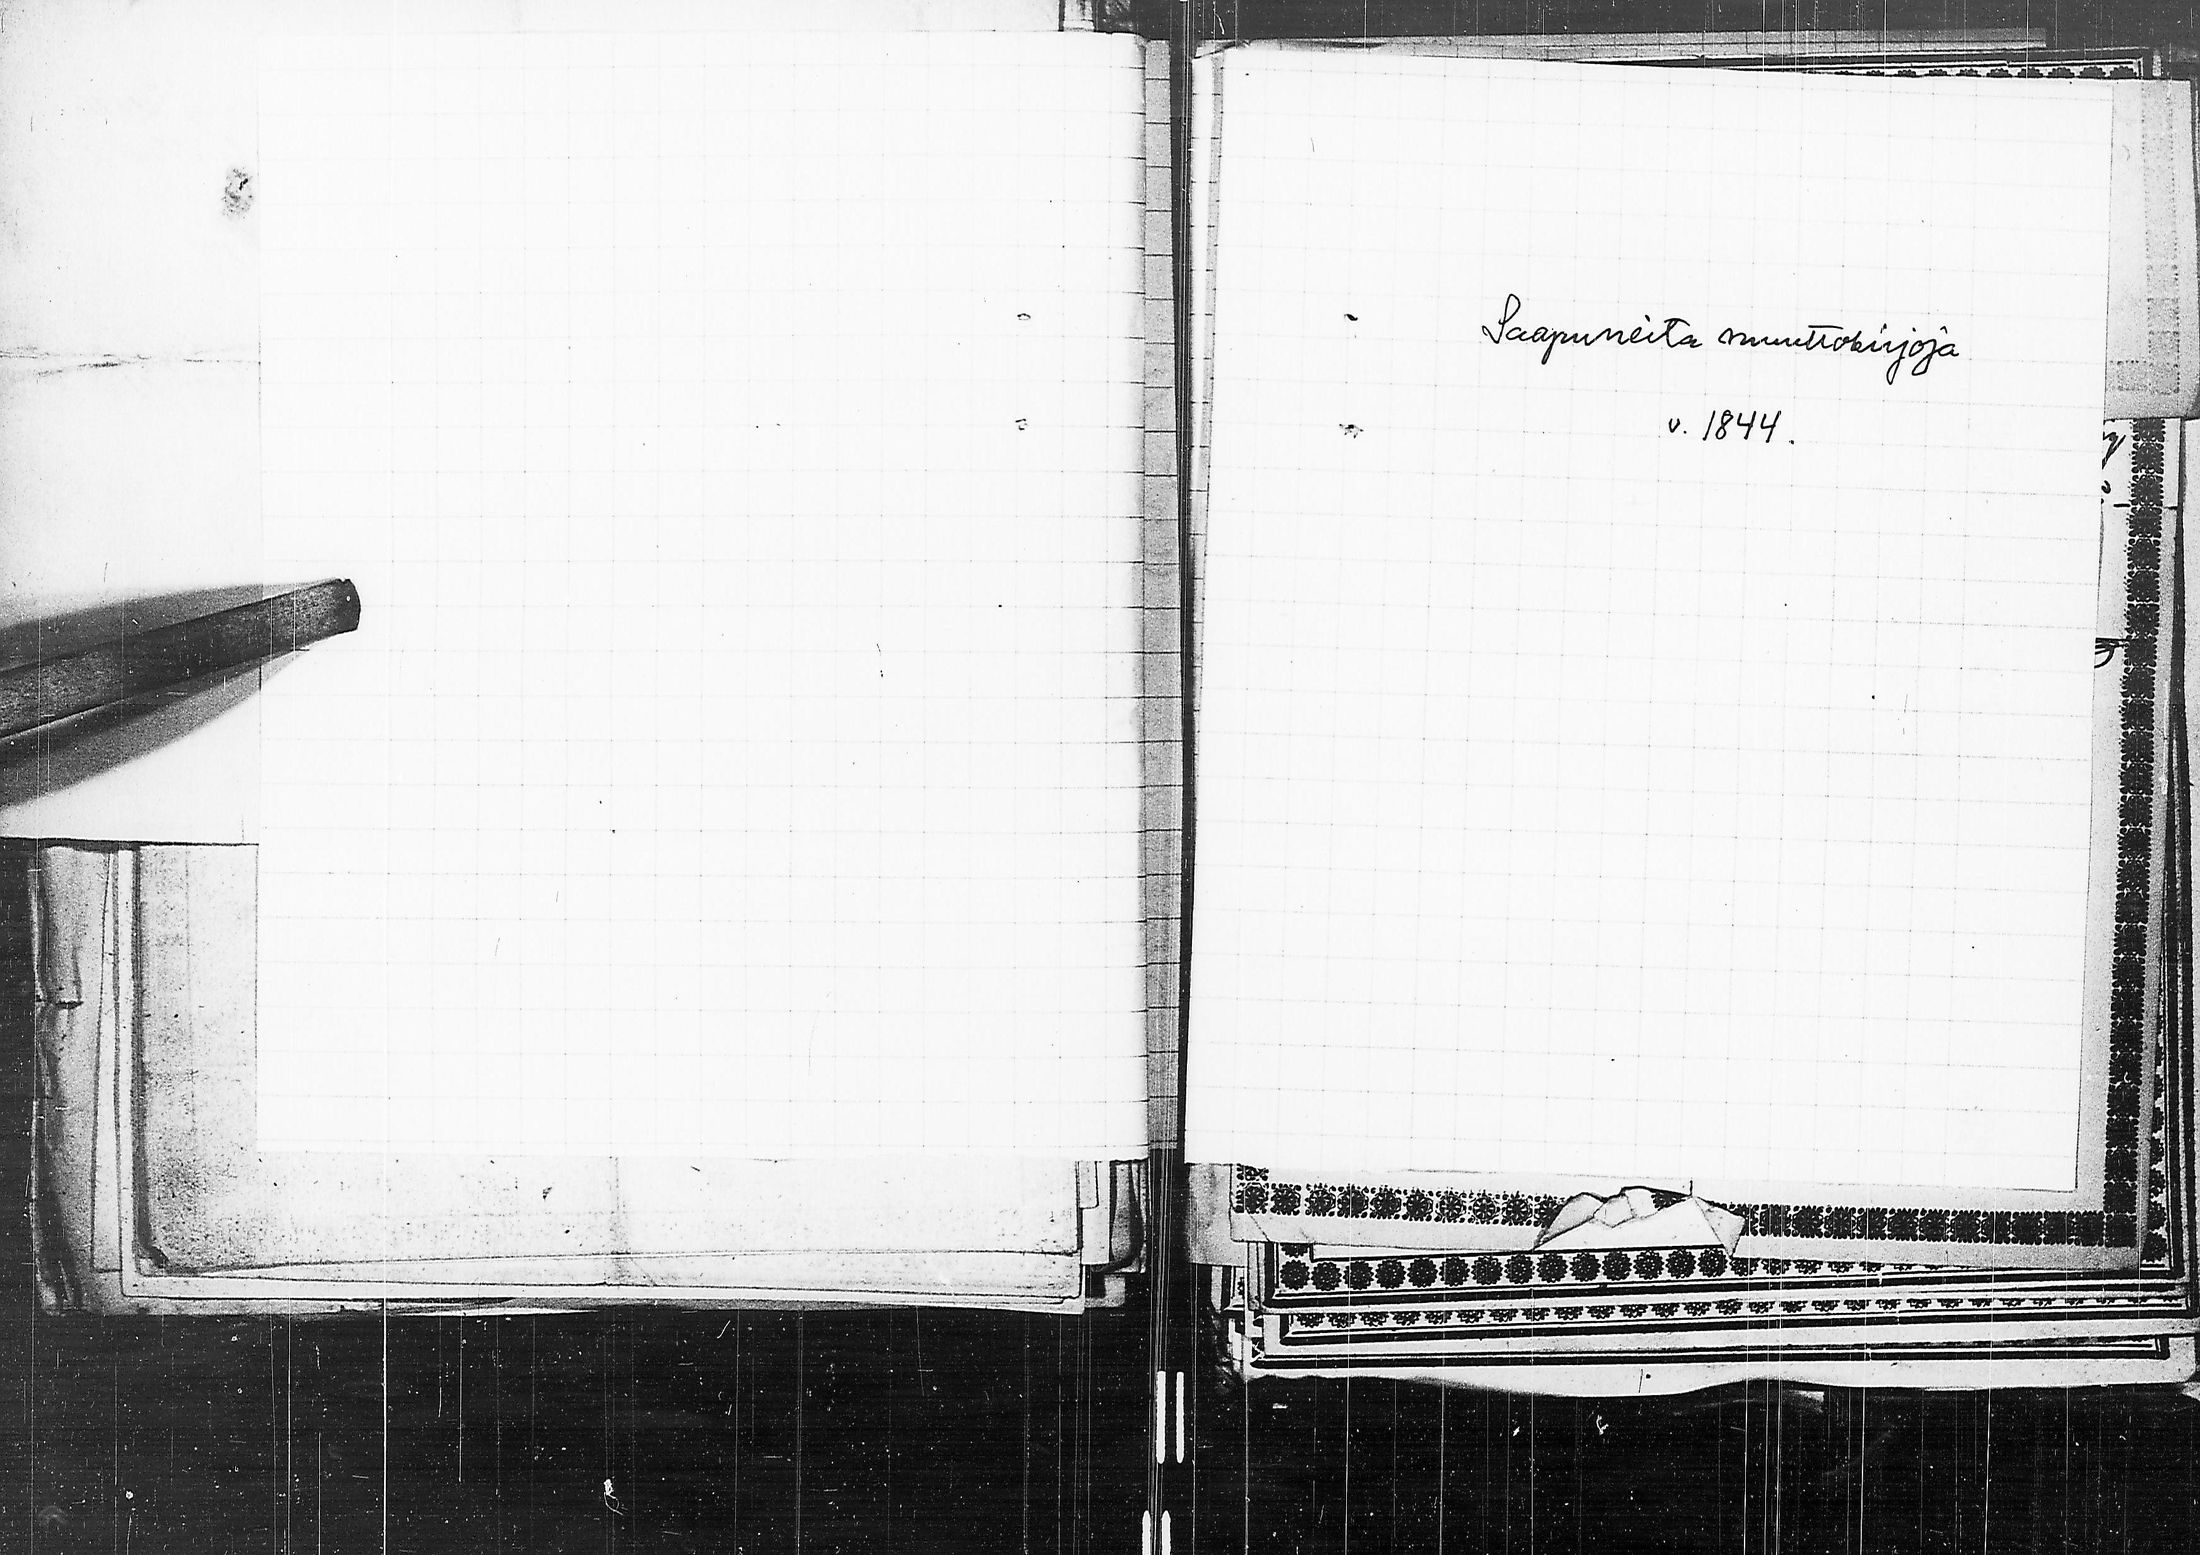 Saapuneita muuttokirjoja
v. 1844.